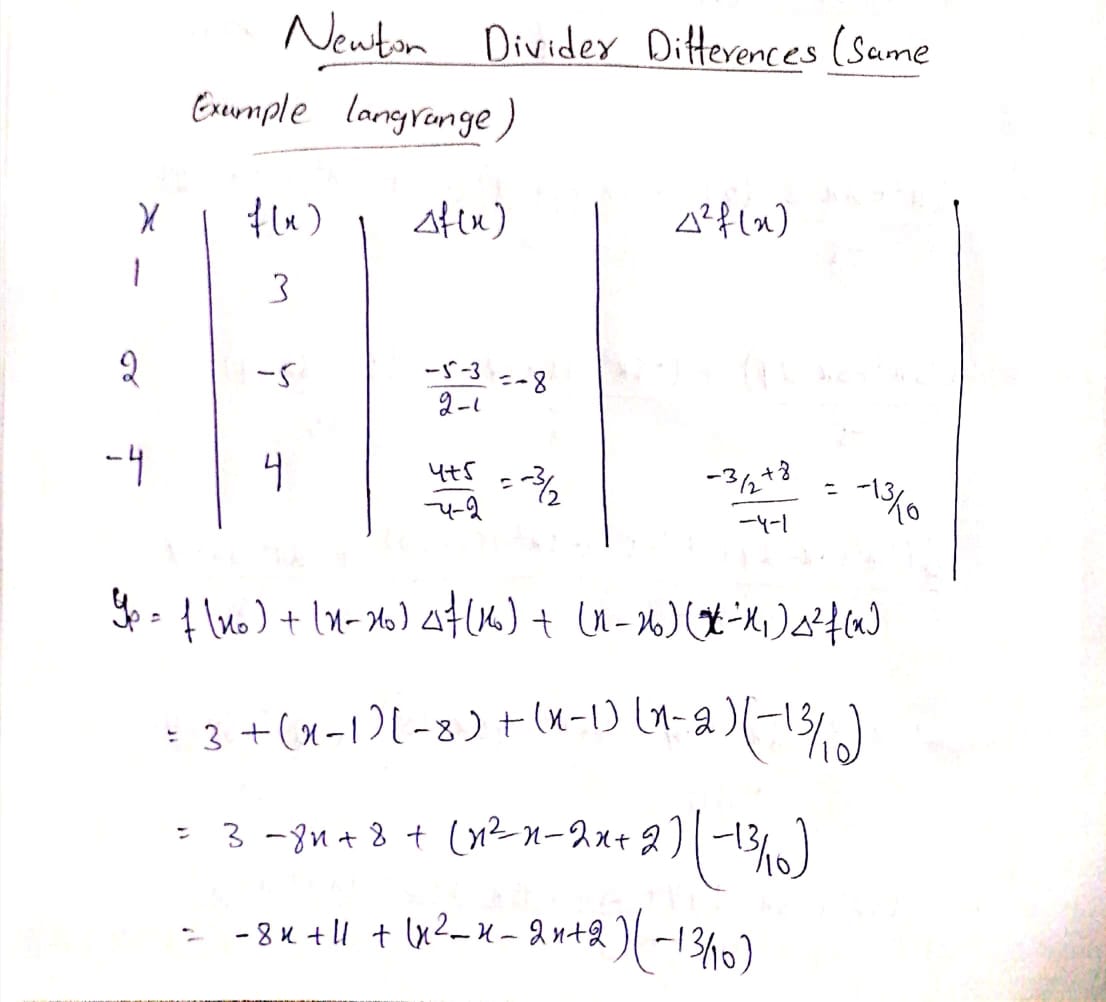 Newton Divider Differences (Same
Example langrange)
x | f(x) | Δf(x) | Δ²f(x) |
1 | 3
2 | -5 | (-5-3)/(2-1) = -8
-4 | 4 | (4+5)/(-4-2) = -3/2 | (-3/2+8)/(-4-1) = -13/10
yp = f(x₀) + (x-x₀) Δf(x₀) + (x-x₀)(x-x₁)Δ²f(x)
= 3 + (x-1)(-8) + (x-1)(x-2)(-13/10)
= 3 -8x + 8 + (x²-x-2x+2)(-13/10)
= -8x + 11 + (x²-x-2x+2)(-13/10)